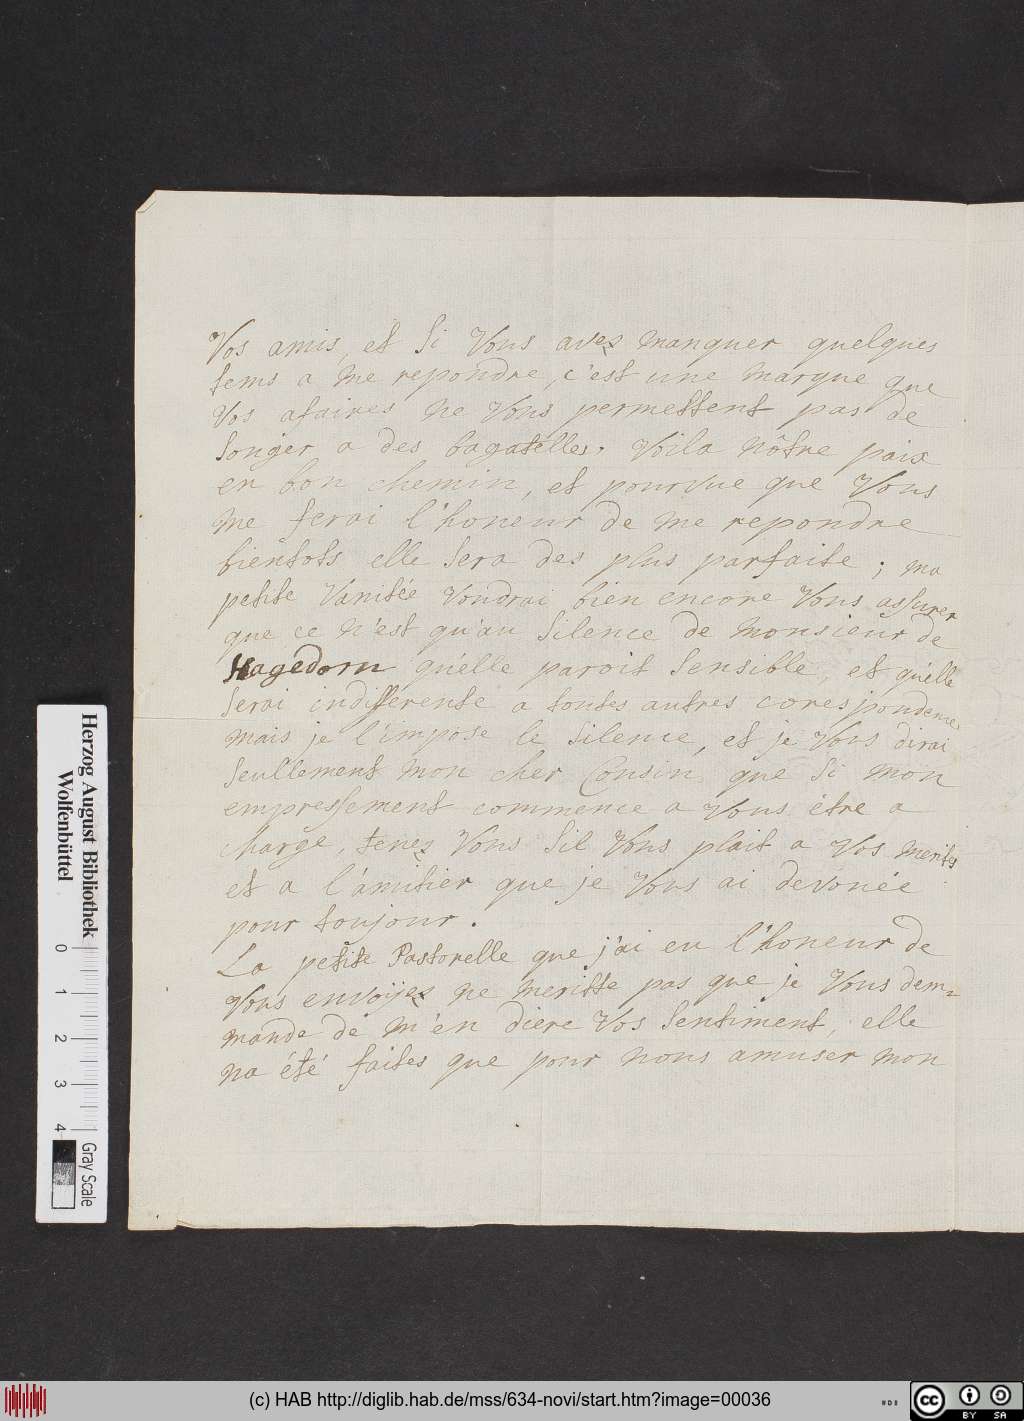 Vos amis, et Si Vous avez manquer quelques
tems a me repondre, c'est une marque que
Vos afaires ne Vous permettent pas de
Songer a des bagatelles. Voila nôtre paix
en bon chemin, et pourvue que Vous
me ferai l'honeur de me repondre
bientots elle Sera des plus parfaite ; ma
petite Vanitée Voudrai bien encore Vous assurer
que ce n'est qu'au Silence de Monsieur de
Hagedorn qu'elle paroit Sensible, et qu'elle
Serai indifferente a toutes autres corespondence
mais je l'impose le Silence, et je Vous dirai
Seullement mon cher Cousin que Si mon
empressement commence a Vous étre a
charge, tenez Vous Sil Vous plait a Vos merites
et a l'amitier que je Vous ai devouée
pour toujour.
La petite Pastorelle que j'ai eu l'honeur de
Vous envoijez ne meritte pas que je Vous dem=
mande de m'en diere Vos Sentiment, elle
na été faites que pour nous amuser mon
Herzog August Bibliothek
Wolfenbüttel
0 1 2 3 4
Gray Scale
(c) HAB http://diglib.hab.de/mss/634-novi/start.htm?image=00036
cc BY SA